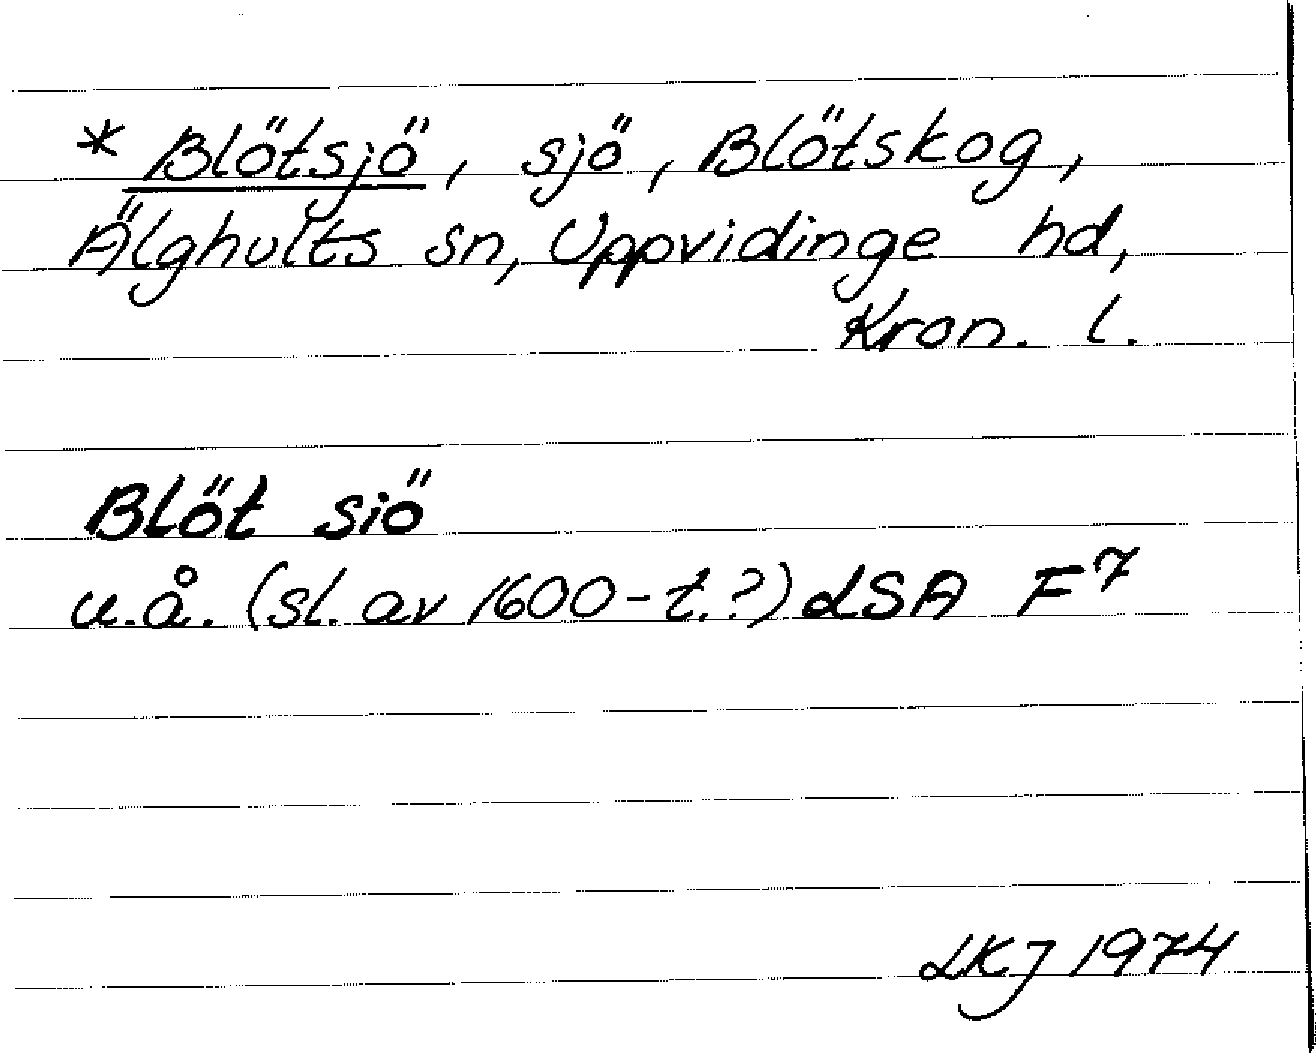 * Blötsjö, sjö, Blötskog,
Älghults sn, Uppvidinge hd,
Kron. l.
Blöt siö
u.å. (sl. av 1600-t.?) LSA F7
LKJ 1974